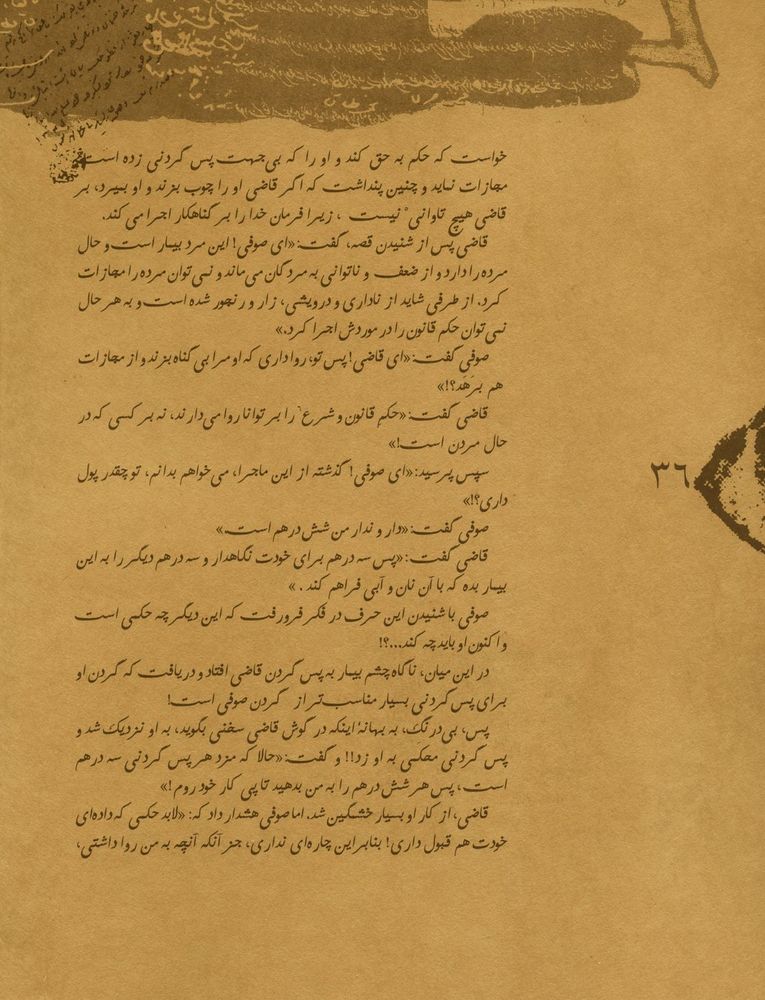 خواست که حکم به حق کند و او را که بی‌جهت پس گردنی زده است،
مجازات نماید و چنین پنداشت که اگر قاضی او را چوب بزند و او بمیرد، بر
قاضی هیچ تاوانی نیست، زیرا فرمان خدا را بر گناهکار اجرا می کند.
قاضی پس از شنیدن قصه، گفت: «ای صوفی! این مرد بیمار است و حال
مرده را دارد و از ضعف و ناتوانی به مردگان می‌ماند و نمی‌توان مرده را مجازات
کرد. از طرفی شاید از ناداری و درویشی، زار و رنجور شده است و به هر حال
نمی‌توان حکم قانون را در موردش اجرا کرد.»
صوفی گفت: «ای قاضی! پس تو، روا داری که او مرا بی گناه بزند و از مجازات
هم برَهَد؟!»
قاضی گفت: «حکمِ قانون و شرع را بر توانا روا می‌دارند، نه بر کسی که در
حال مردن است!»
سپس پرسید: «ای صوفی! گذشته از این ماجرا، می‌خواهم بدانم، تو چقدر پول
داری؟!»
صوفی گفت: «دار و ندار من شش درهم است.»
قاضی گفت: «پس سه درهم برای خودت نگاهدار و سه درهم دیگر را به این
بیمار بده که با آن نان و آبی فراهم کند.»
صوفی با شنیدن این حرف در فکر فرو رفت که این دیگر چه حکمی است
و اکنون او باید چه کند...؟!
در این میان، ناگاه چشم بیمار به پس گردن قاضی افتاد و دریافت که گردن او
برای پس گردنی بسیار مناسب‌تر از گردن صوفی است!
پس، بی‌درنگ، به بهانهٔ اینکه در گوش قاضی سخنی بگوید، به او نزدیک شد و
پس گردنی محکمی به او زد!! و گفت: «حالا که مزد هر پس گردنی سه درهم
است، پس هر شش درهم را به من بدهید تا پی کار خود روم!»
قاضی، از کار او بسیار خشمگین شد. اما صوفی هشدار داد که: «لابد حکمی که داده‌ای
خودت هم قبول داری! بنابراین چاره‌ای نداری، جز آنکه آنچه به من روا داشتی،
۳۶